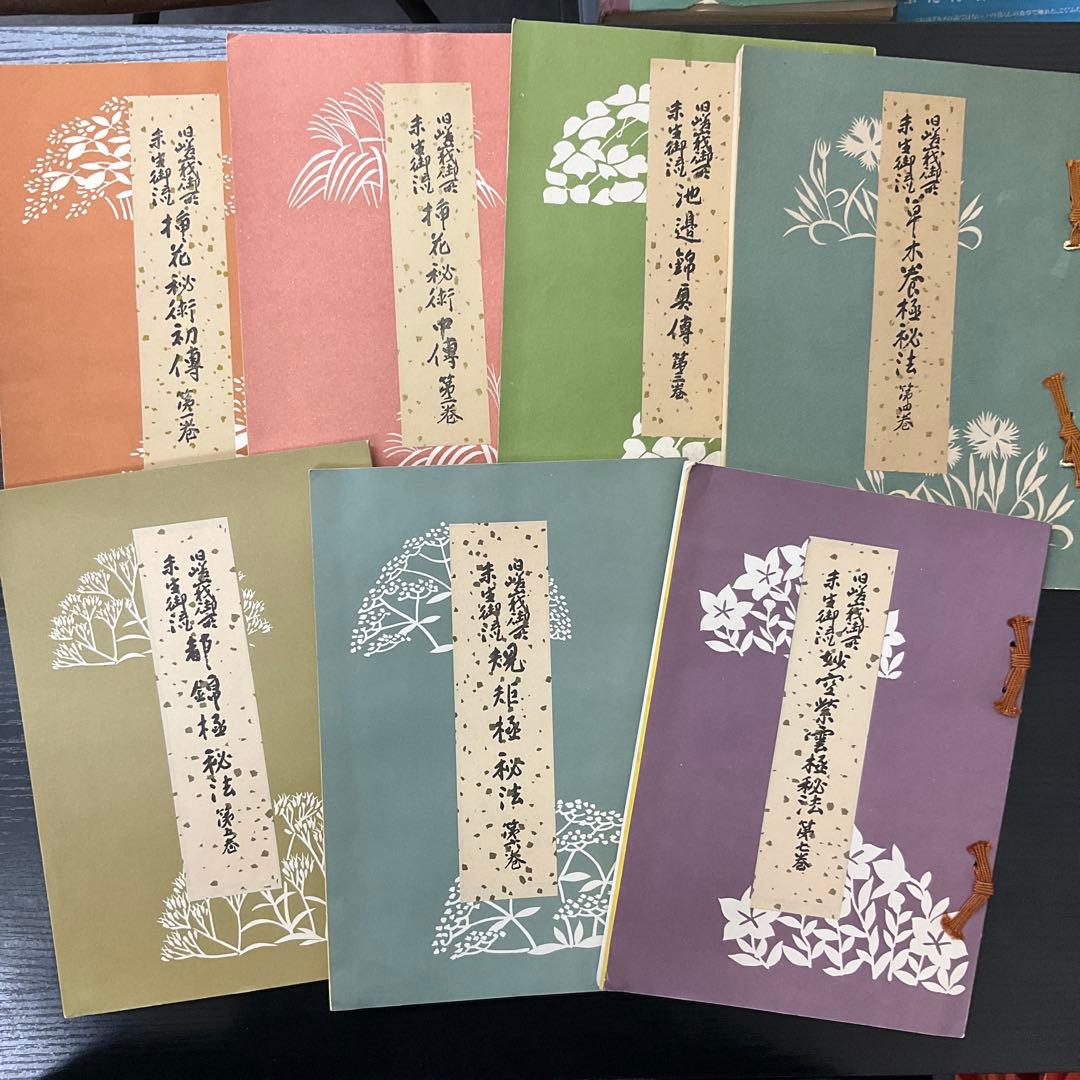 旧嵯峨御所
未生御流
挿花秘術初傳 第一巻
旧嵯峨御所
未生御流
挿花秘術中傳 第二巻
旧嵯峨御所
未生御流
池邊錦奥傳 第三巻
旧嵯峨御所
未生御流
草木養極秘法 第四巻
旧嵯峨御所
未生御流
都錦極秘法 第五巻
旧嵯峨御所
未生御流
規矩極秘法 第六巻
旧嵯峨御所
未生御流
妙空紫雲極秘法 第七巻